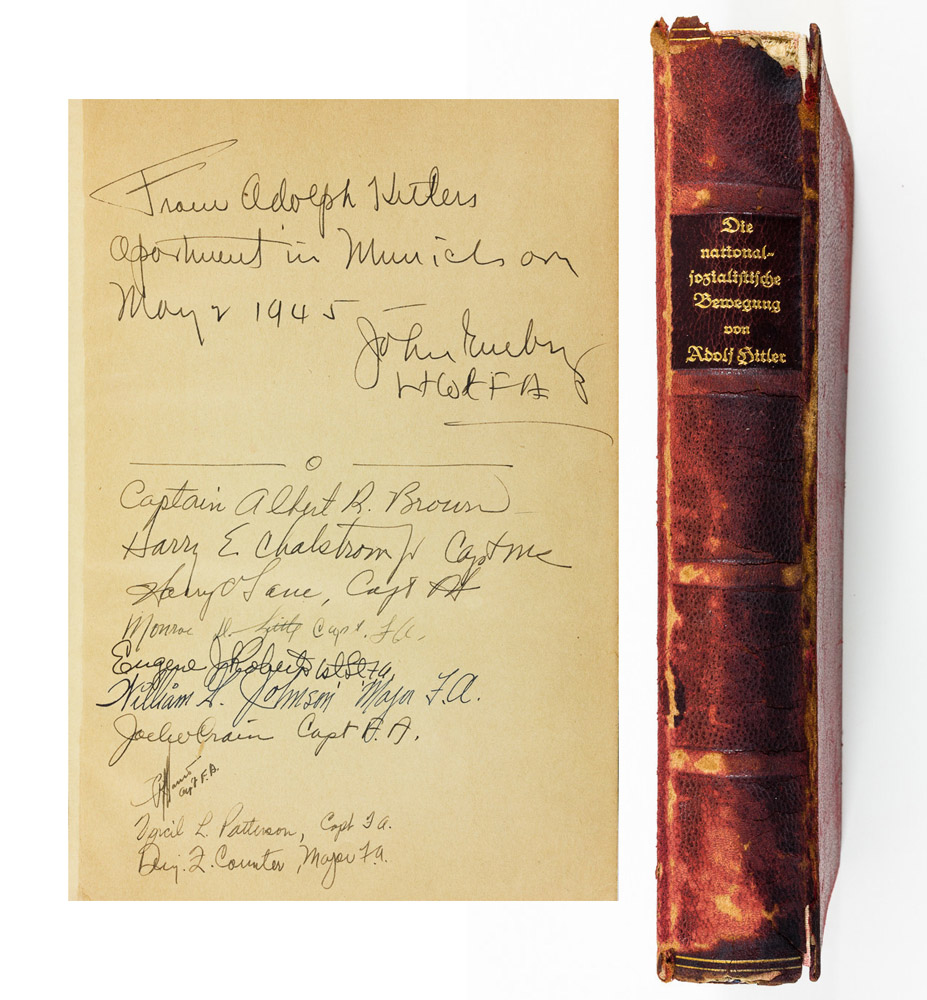 From Adolph Hitlers
Apartment in Munich on
May 2 1945
John
Lt Col F A
Captain Albert R. Brown
Harry E. Chalstrom Jr Capt MC
Harry O Lane, Capt FA
Monroe Capt. FA.
Eugene J Roberts 1st Lt FA
William L. Johnson Major F.A.
Crain Capt F.A.
Capt F.A.
Virgil L. Patterson, Capt Fa.
Benj. F. Counter, Major Fa.
Die
national-
sozialistische
Bewegung
von
Adolf Hitler